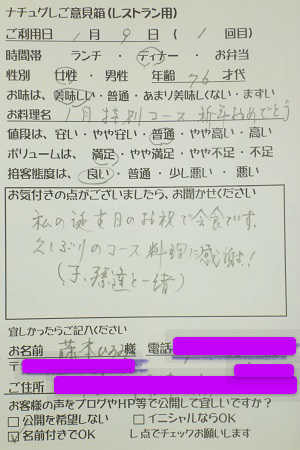 ナチュグレご意見箱(レストラン用)
ご利用日 1月 9日 ( 1 回目)
時間帯 ランチ ・ ディナー ・ お弁当
性別 女性 ・ 男性 年齢 76 才代
お味は、美味しい・普通・あまり美味しくない・まずい
お料理名 1月特別コース 新年おめでとう
値段は、安い・やや安い・普通・やや高い・高い
ボリュームは、 満足・やや満足・やや不足・不足
接客態度は、 良い ・ 普通 ・ 少し悪い ・ 悪い
お気付きの点がございましたら、お聞かせください
私の誕生日のお祝で会食です。
久しぶりのコース料理に感謝!
(子、孫達と一緒)
宜しかったらご記入ください
お名前 藤本 様 電話
〒
ご住所
お客様の声をブログやHP等で公開して宜しいですか?
□公開を希望しない □イニシャルならOK
☑名前付きでOK レ点でチェックお願いします